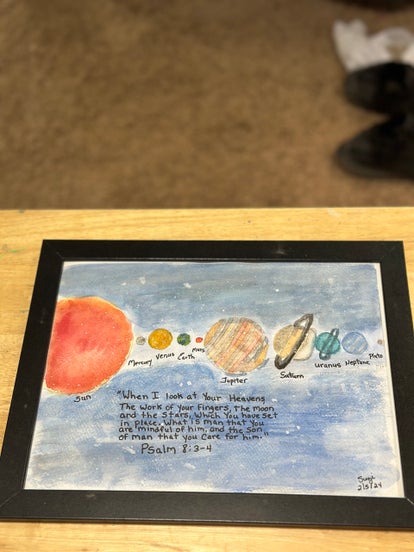 Sun
Mercury
Venus
Earth
Mars
Jupiter
Saturn
Uranus
Neptune
Pluto
"When I look at Your Heavens
The work of your fingers, the moon
and the stars, which you have set
in place, what is man that you
are mindful of him, and the son
of man that you care for him."
Psalm 8:3-4
2/5/24